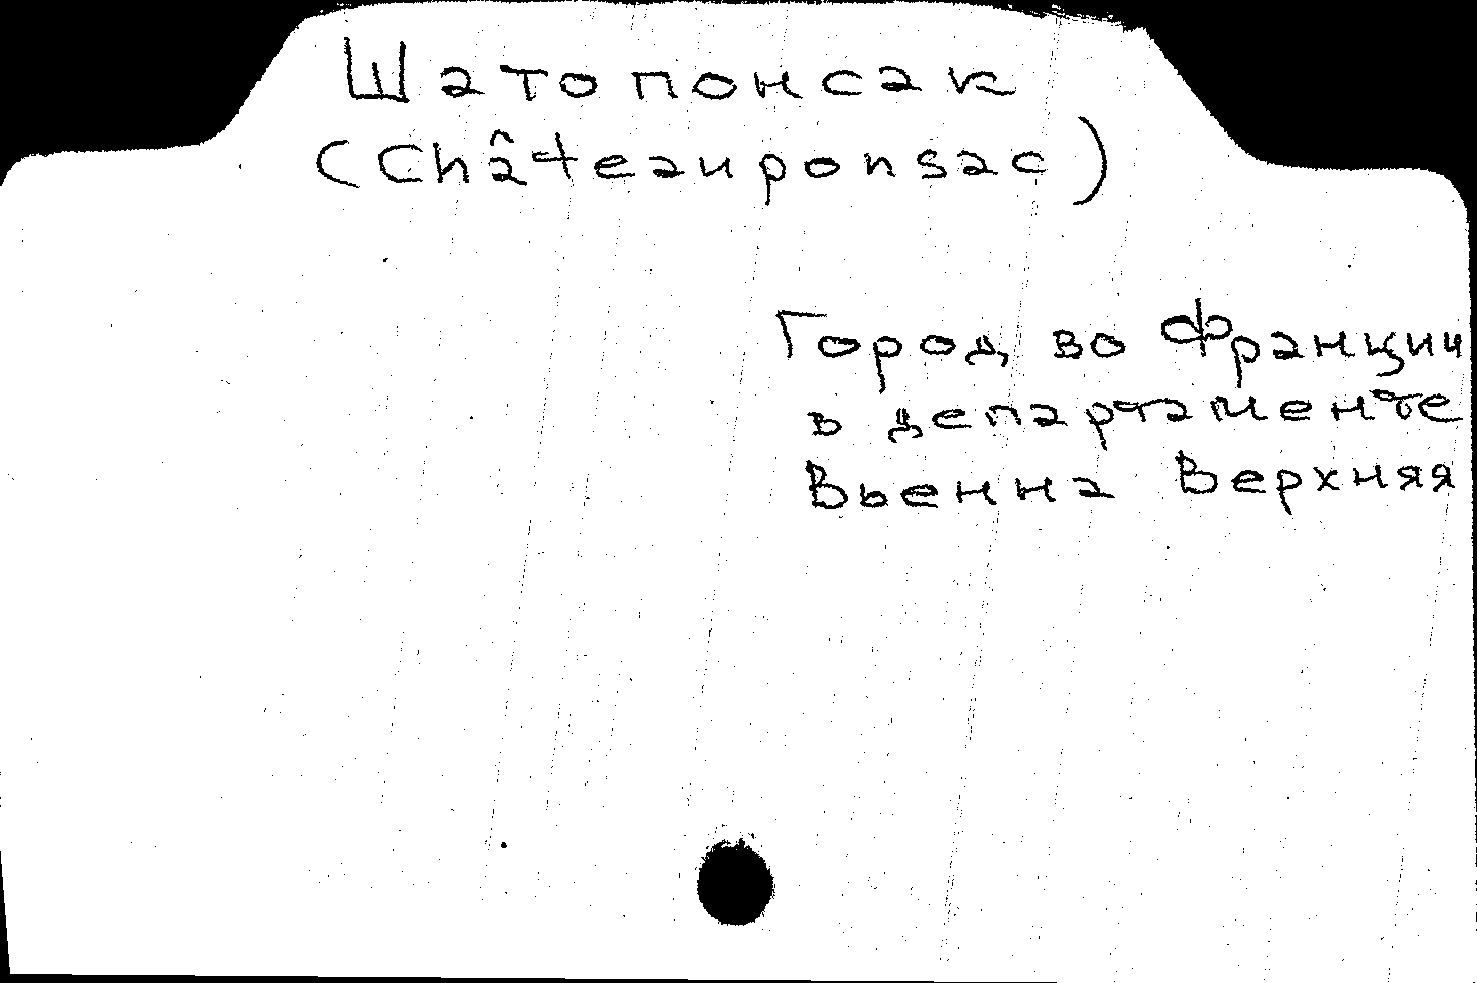 Шатопонсак
(Châteauponsac)
Город во Франции
в департаменте
Вьенна Верхняя